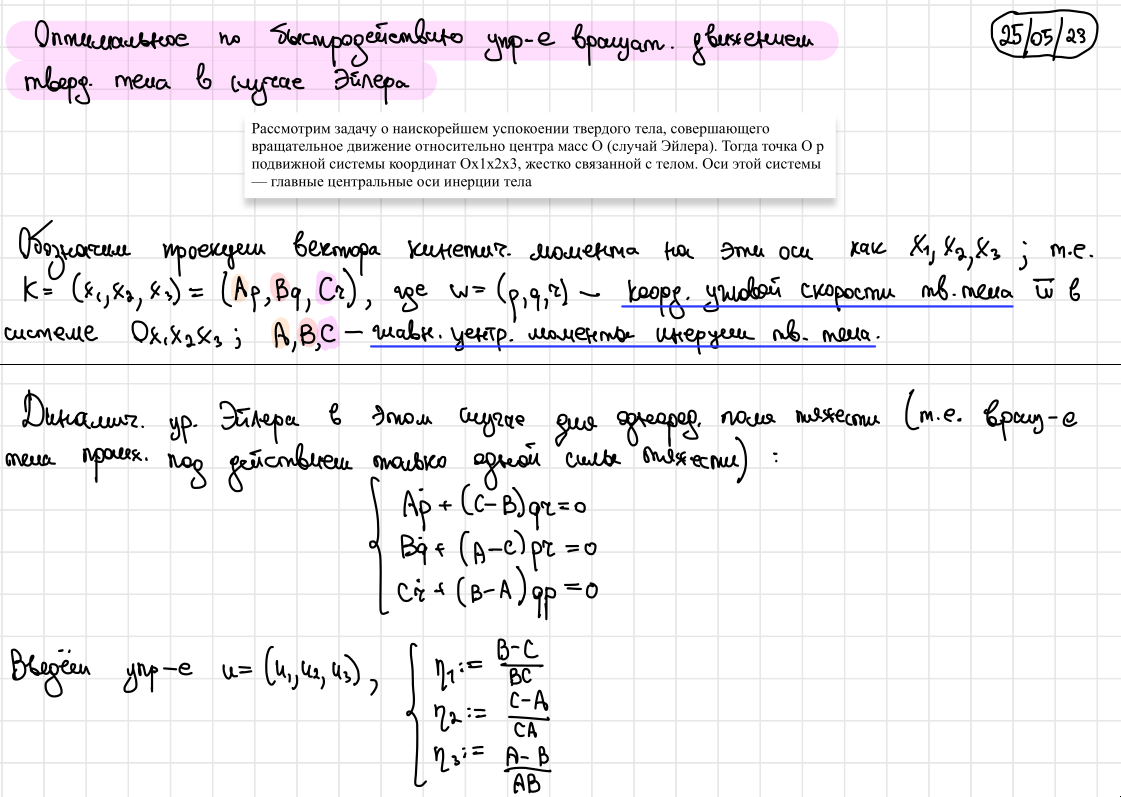 Оптимальное по быстродействию упр-е вращат. движением
25/05/23
тверд. тела в случае Эйлера
Рассмотрим задачу о наискорейшем успокоении твердого тела, совершающего
вращательное движение относительно центра масс О (случай Эйлера). Тогда точка О р
подвижной системы координат Ox1x2x3, жестко связанной с телом. Оси этой системы
— главные центральные оси инерции тела
Обозначим проекции вектора кинетич. момента на эти оси как x₁, x₂, x₃ ; т.е.
K = (x₁, x₂, x₃) = (Ap, Bq, Cr), где w = (p, q, r) – коорд. угловой скорости тв. тела w̅ в
системе Ox₁x₂x₃ ; A, B, C – главн. центр. моменты инерции тв. тела.
Динамич. ур. Эйлера в этом случае для однород. поля тяжести (т.е. вращ-е
тела происх. под действием только одной силы тяжести) :
Aṗ + (C-B)qr = 0
Bq̇ + (A-C)pr = 0
Cṙ + (B-A)qp = 0
Введём упр-е u = (u₁, u₂, u₃),
η₁ := (B-C)/BC
η₂ := (C-A)/CA
η₃ := (A-B)/AB